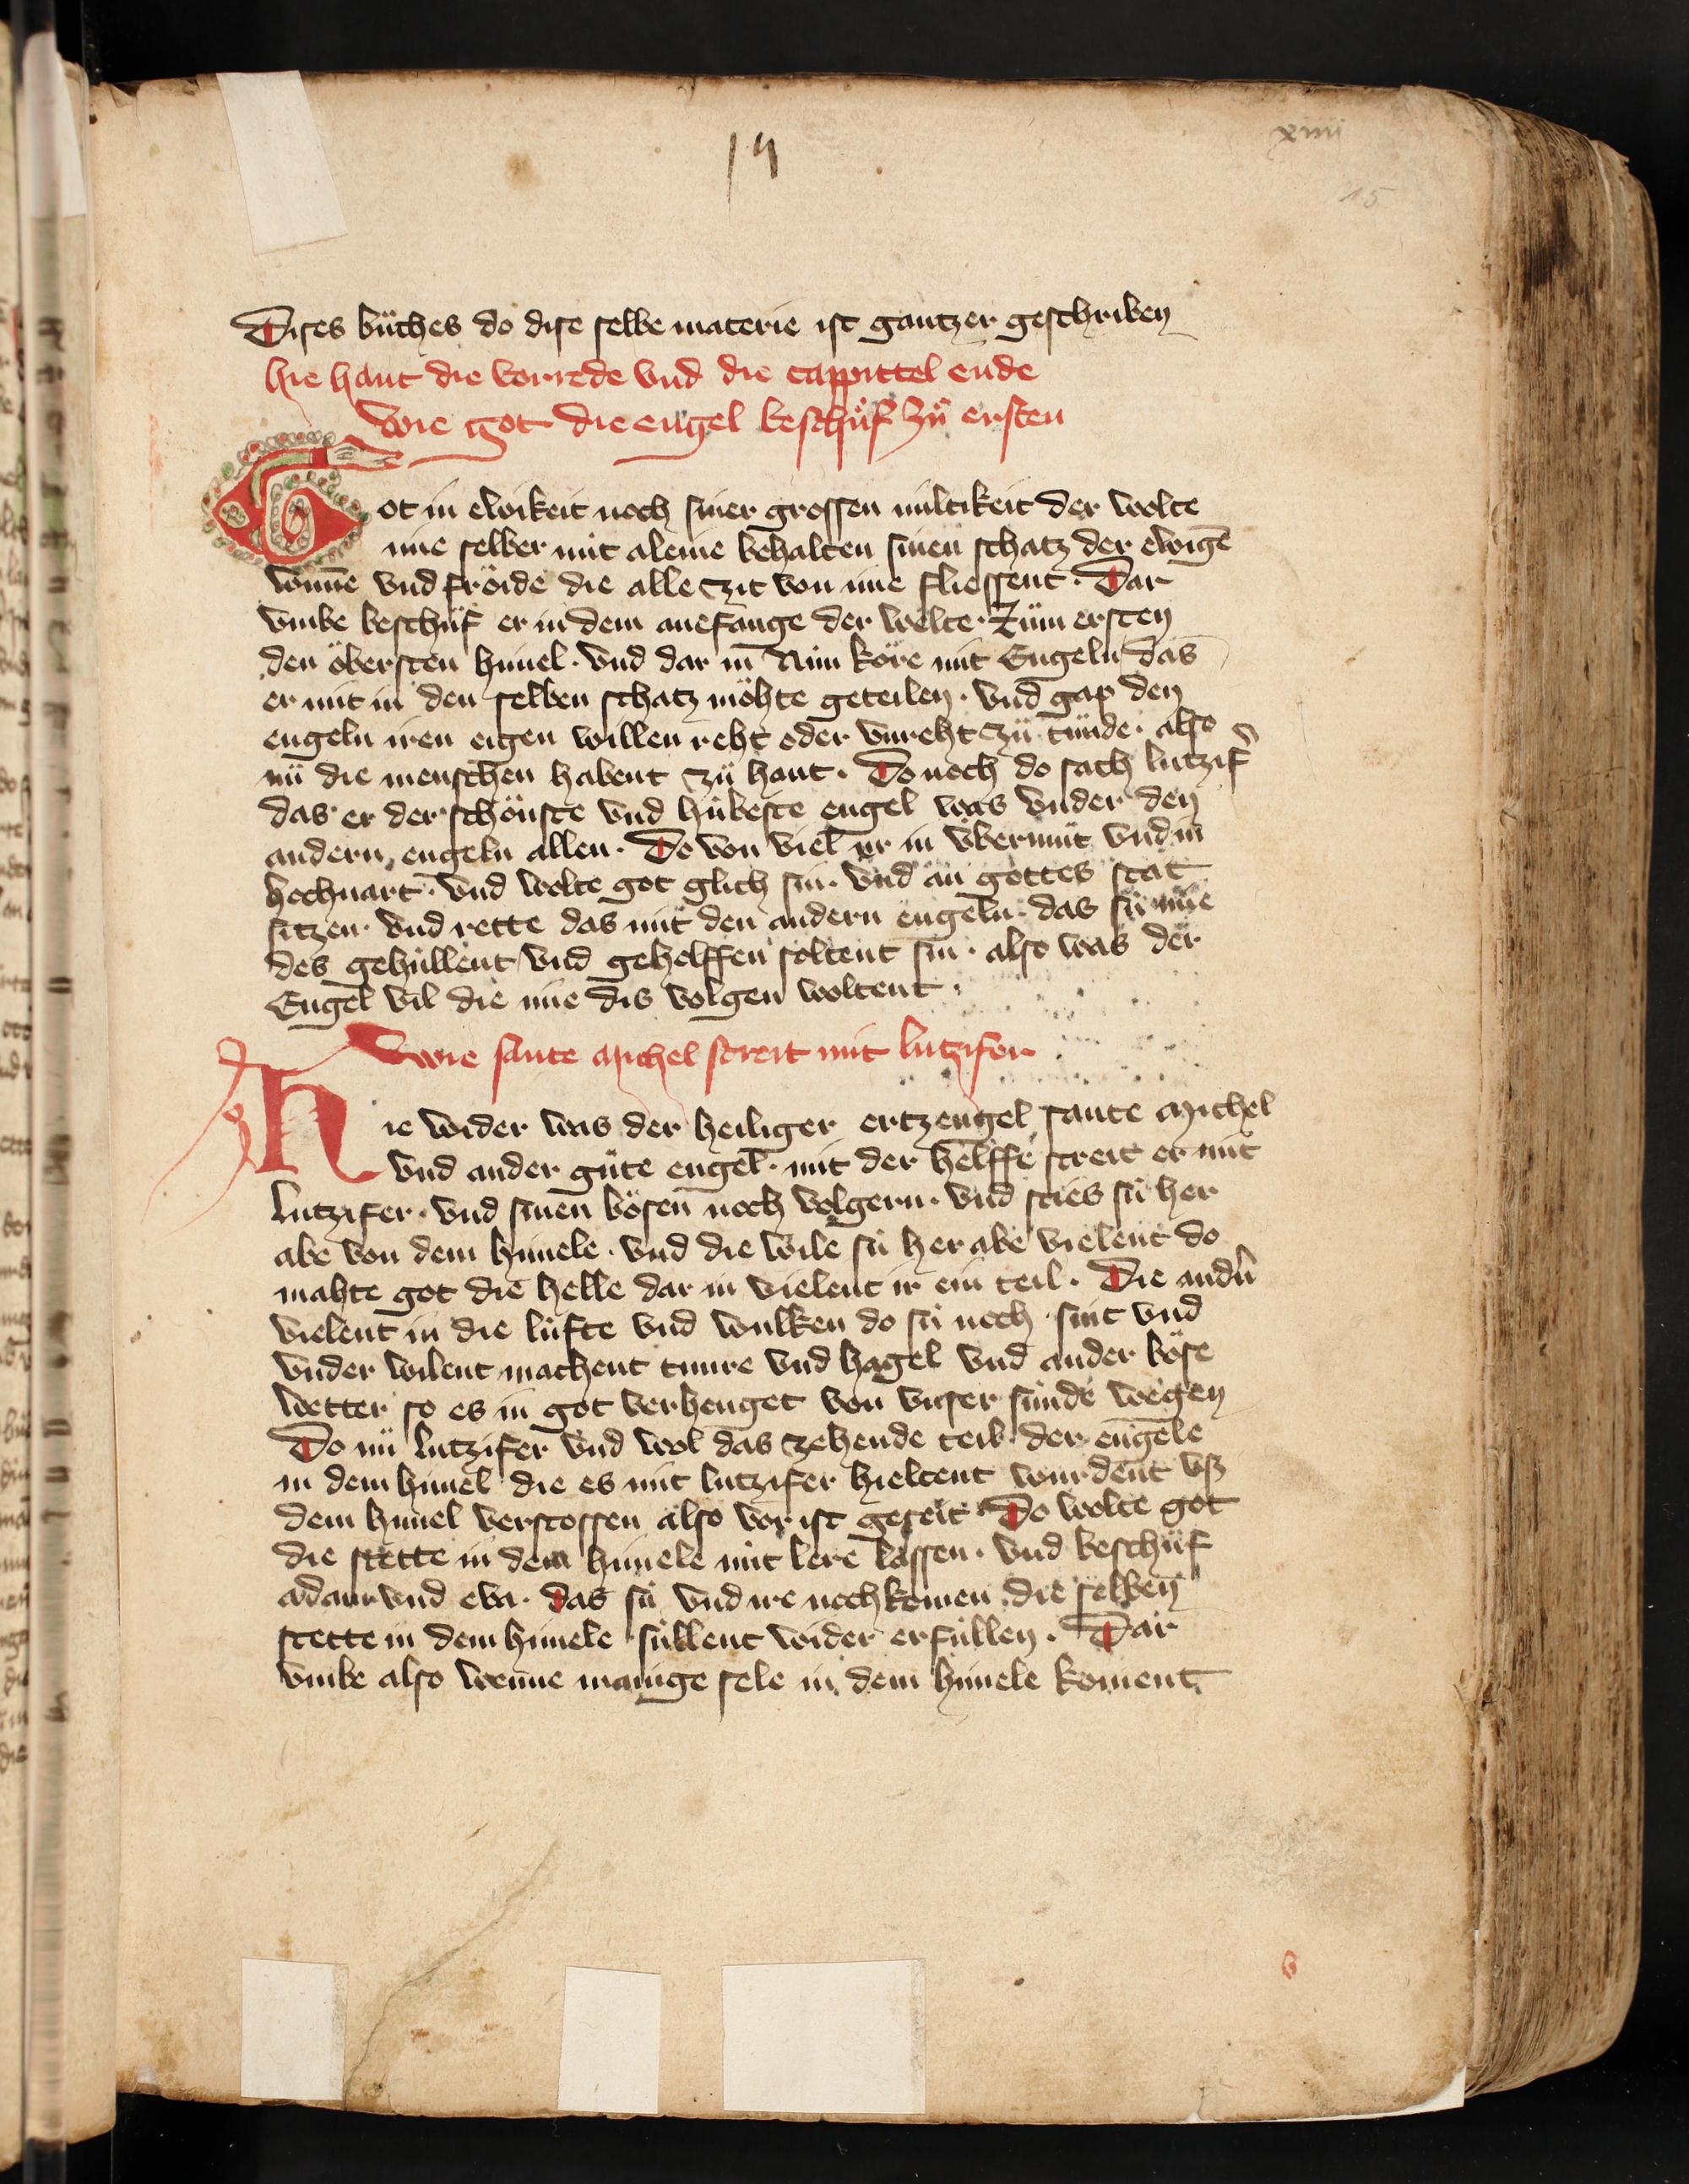 xiiii
14
15
Dises bůches do dise selbe materie ist gantzer geschriben
hie hant die vorrede vnd die cappittel ende
Wie got die engel beschůf zů ersten
Got in ewikeit noch siner grossen miltikeit der wolte
ime selber nüt aleine behalten sinen schatz der ewigē
wunne vnd fröide die alle zit von ime fliessent · Dar
vmbe beschůf er in dem anefange der welte · Zům ersten
den öbersten himel · vnd dar in Nún köre mit Engeln das
er mit in den selben schatz möhte geteilen · vnd gap den
engeln iren eigen willen reht oder vnreht zů tůnde · also
nů die menschen habent zů hant · Do noch do sach lutzif̃
das er der schönste vnd húbeste engel was vnder den
andern engeln allen · Do von viel er in v̈bermůt vnd in
hochuart · vnd wolte got glich sin · vnd an gottes stat
sitzen · vnd rette das mit den andern engeln · das sú ime
des gehúllent vnd geholffen soltent sin · also was der
Engel vil die ime dis volgen woltent ·
Wie sante michel streit mit lutzifer
Hie wider was der heiliger ertzengel sante michel
vnd ander gůte engel · mit der helffe streit er mit
lutzifer · vnd sinen bösen noch volgern · vnd sties sú her
abe von dem himele · vnd die wile sú her abe vielent do
mahte got die helle dar in vielent ir ein teil · Die andñ
vielent in die lúfte vnd wulken do sú noch sint vnd
vnder wilent machent tunre vnd hagel vnd ander böse
wetter so es in got verhenget von vnser súnde wegen
Do nů lutzifer vnd wol das zehende teil der engele
in dem himel die es mit lutzifer hieltent wurdent vß
dem himel verstossen also vor ist geseit Do wolte got
die stette in dem himele nüt lere lassen · vnd beschůf
adam vnd eva · das sú vnd ire nochkomen die selben
stette in dem himele súllent wider erfúllen · Dar
vmbe also wenne manige sele in dem himele koment